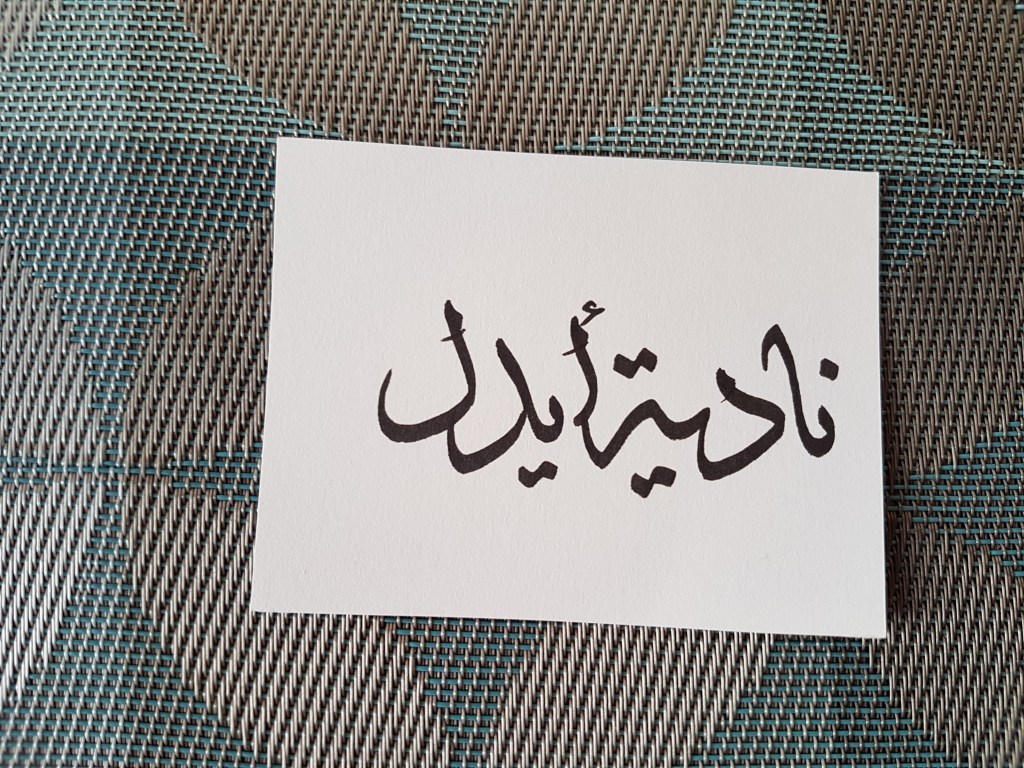 نادية أيدل